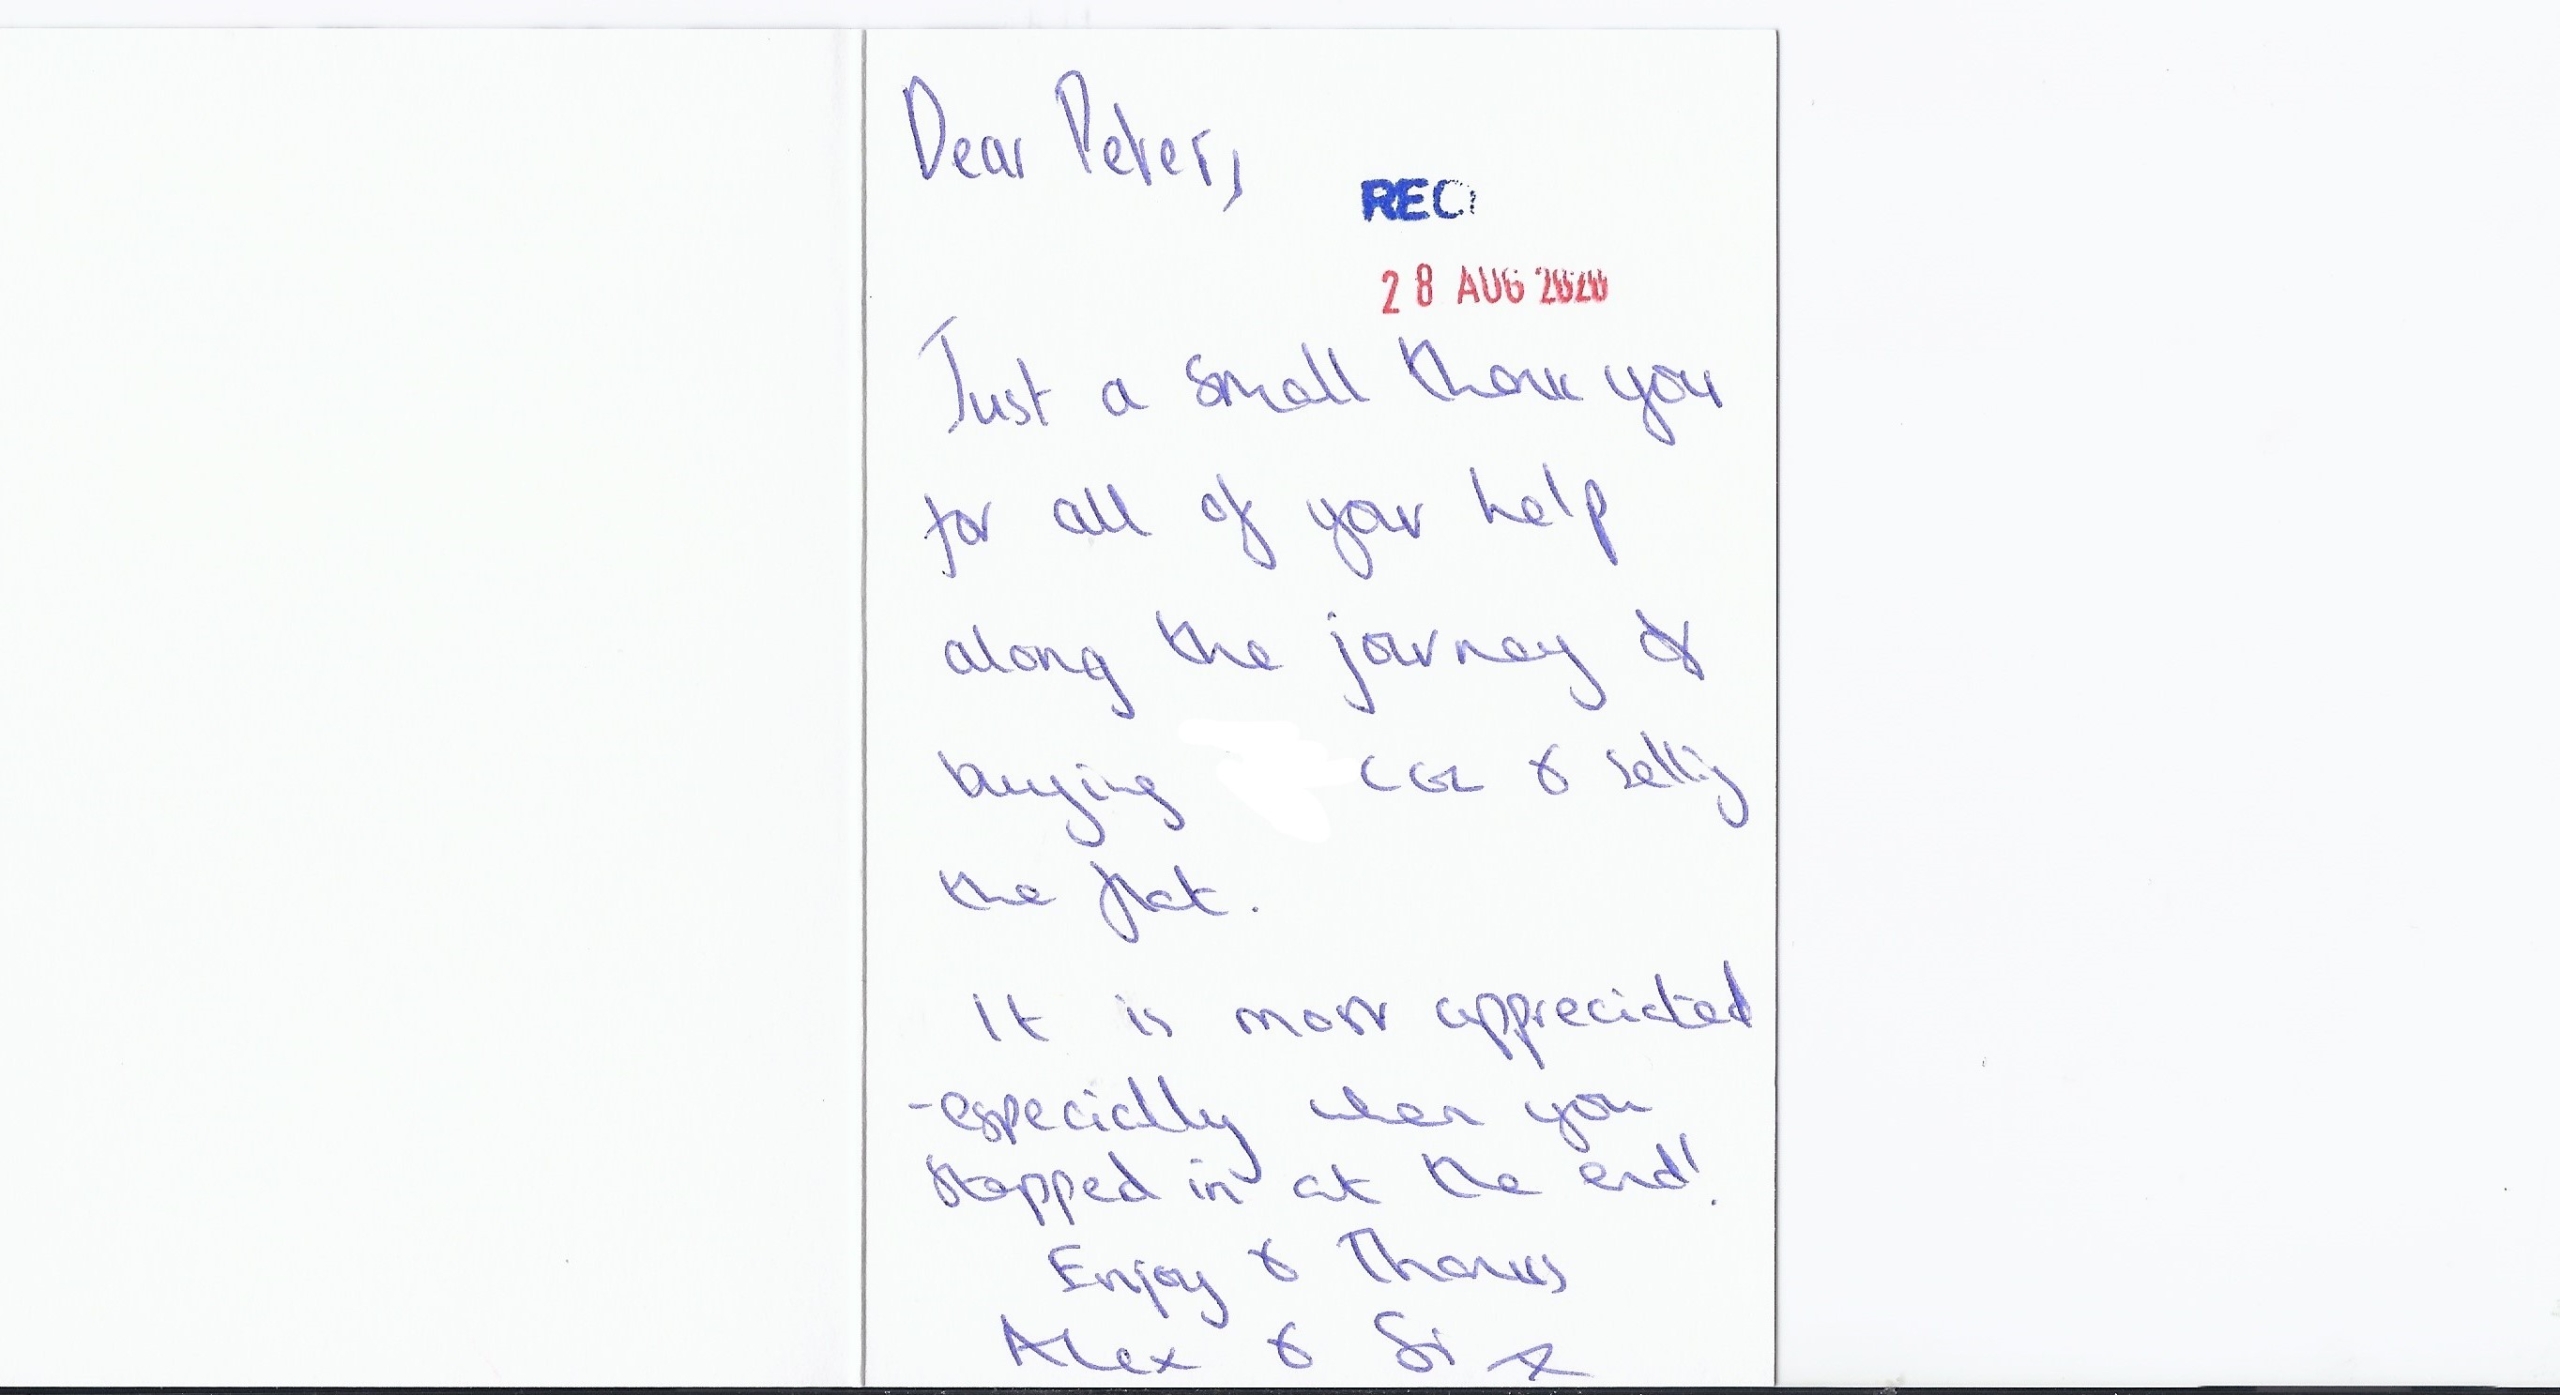 Dear Peter,
REC
28 AUG 2020
Just a small thank you
for all of your help
along the journey of
buying CGL & selling
the flat.
It is most appreciated
-especially when you
stepped in at the end!
Enjoy & Thanks
Alex & Si x